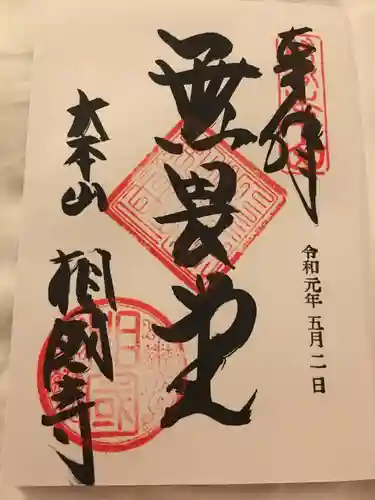 奉拝
令和元年五月二日
無畏堂
大本山
相国寺